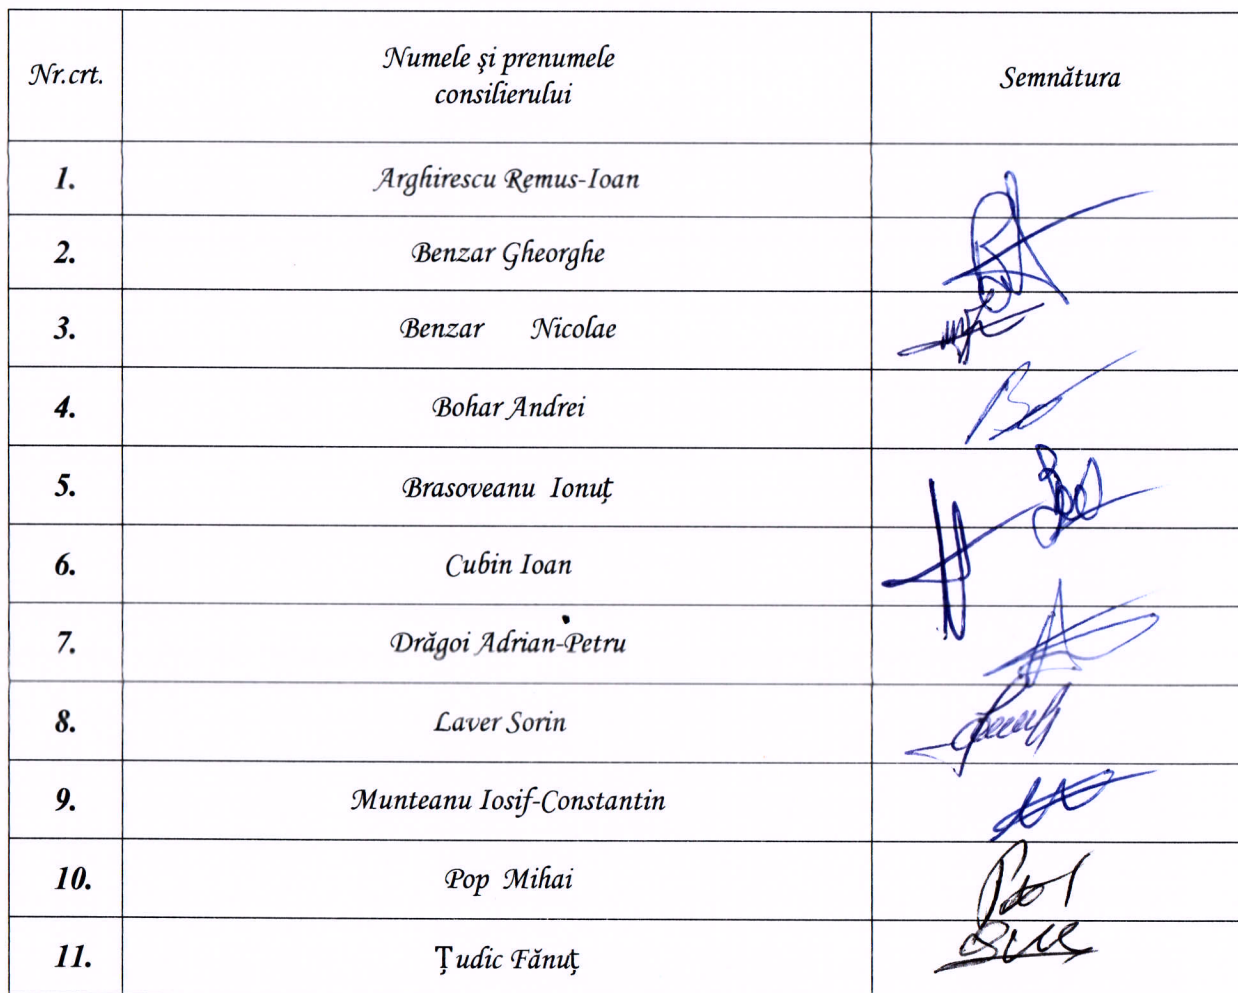 Nr.crt.
Numele și prenumele
consilierului
Semnătura
1. Arghirescu Remus-Ioan
2. Benzar Gheorghe
3. Benzar Nicolae
4. Bohar Andrei
5. Brasoveanu Ionuț
6. Cubin Ioan
7. Drăgoi Adrian-Petru
8. Laver Sorin
9. Munteanu Iosif-Constantin
10. Pop Mihai
11. Țudic Fănuț